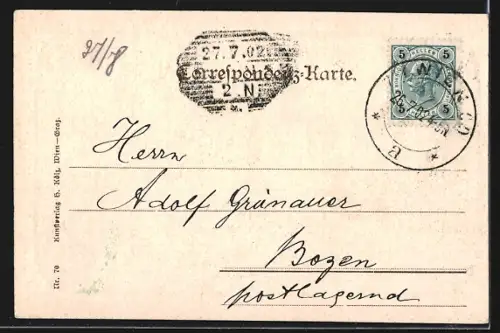 27/8
27.7.02
Correspondenz-Karte.
2.N
5 5
WIEN
a
5 5
Herrn
Adolf Grünauer
Bozen
postlagernd
Nr. 70 Kunstverlag H. Kölz, Wien—Graz.